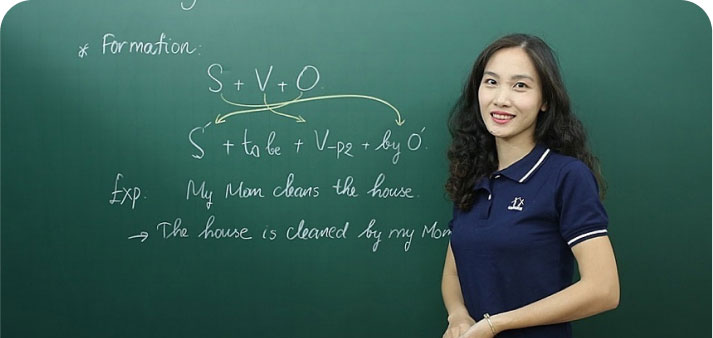 * Formation:
S + V + O.
S' + to be + V-p2 + by O'.
Exp. My Mom cleans the house.
→ The house is cleaned by my Mom